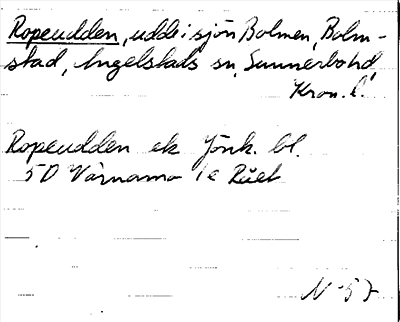 Ropeudden, udde i sjön Bolmen, Bolm-
stad, Angelstads sn, Sunnerbo hd
Kron. l.
Ropeudden ek Jönk. bl.
5D Värnamo 1e
N-57